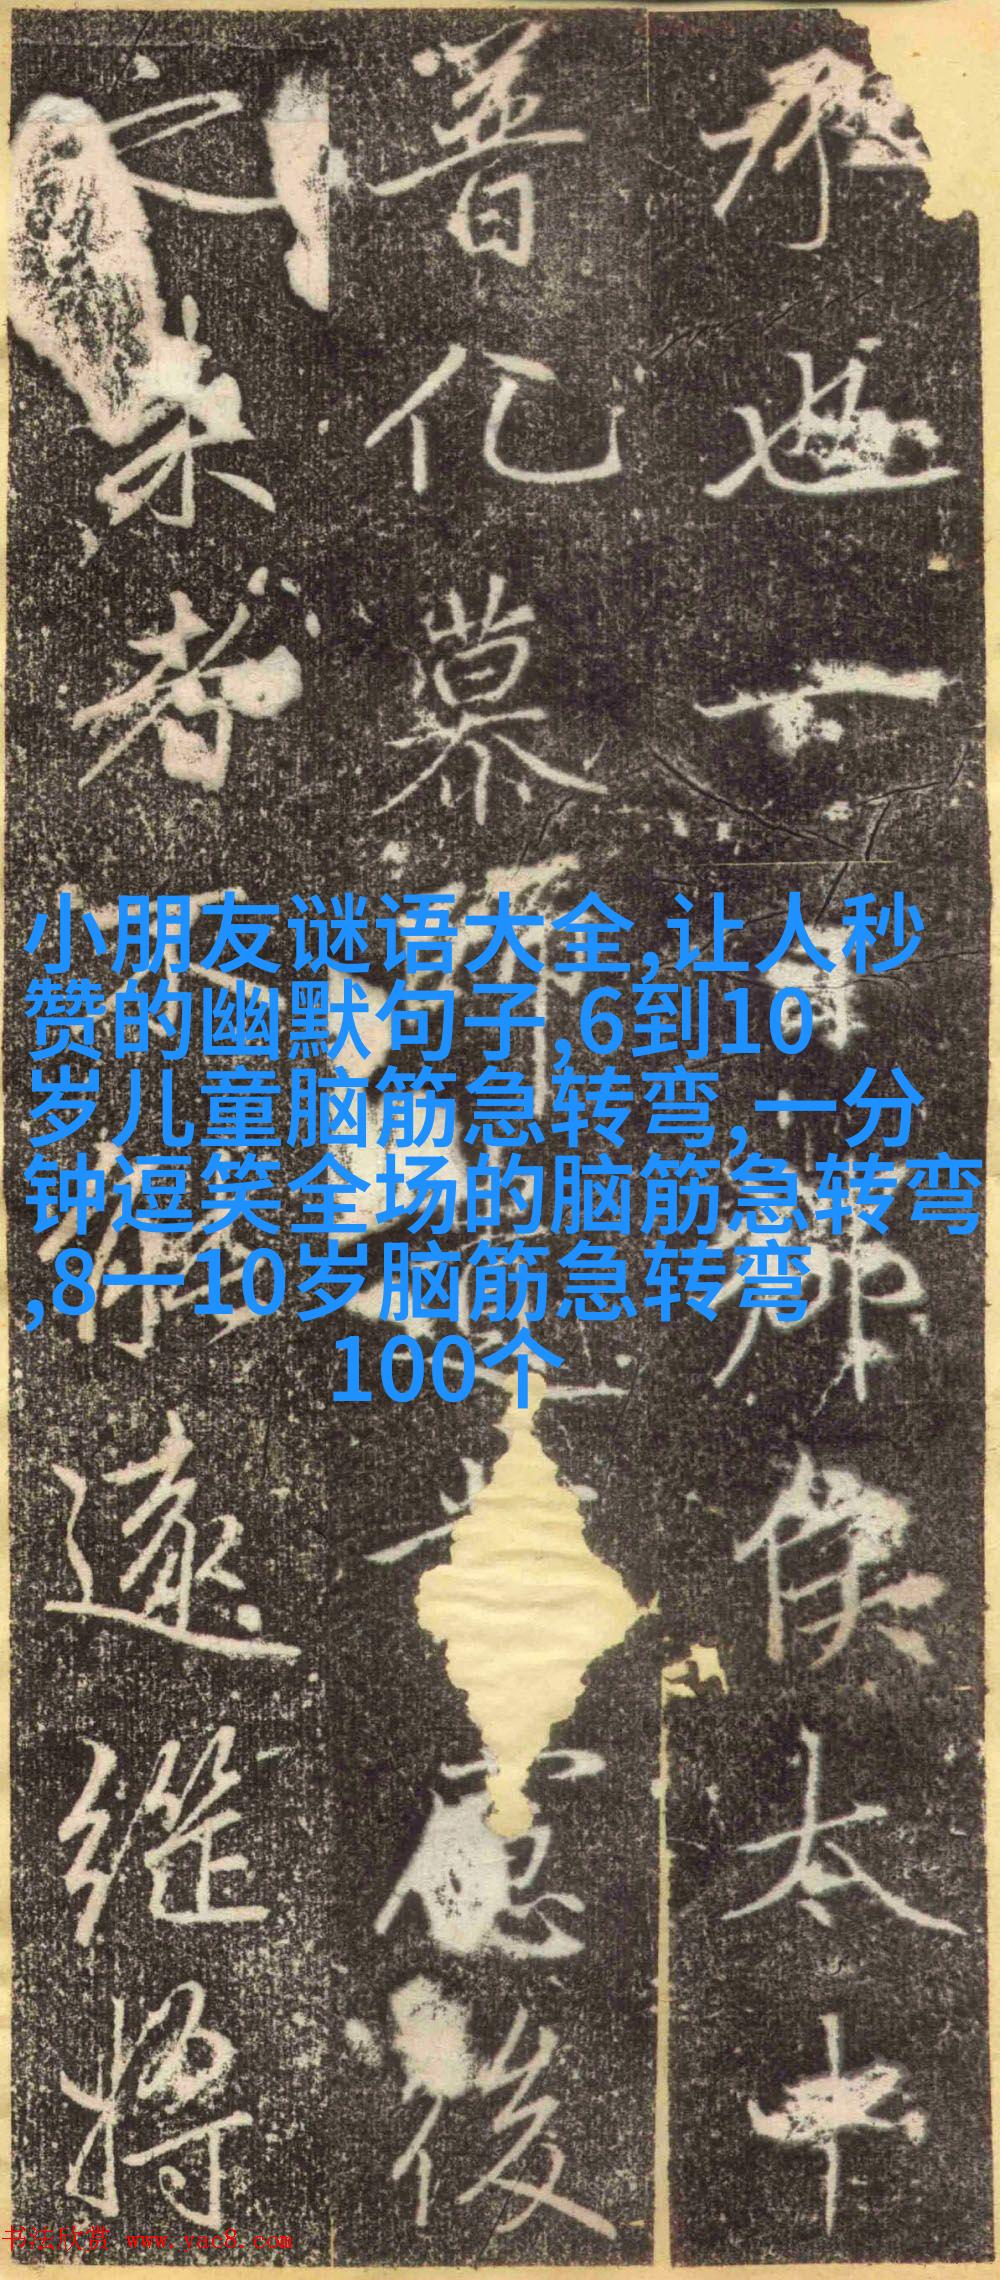 也一鄉侯太中
普化慕後
未者遠継將
小朋友谜语大全,让人秒
赞的幽默句子,6到10
岁儿童脑筋急转弯,一分
钟逗笑全场的脑筋急转弯
,8一10岁脑筋急转弯
100个
书法欣赏 www.yac8.com